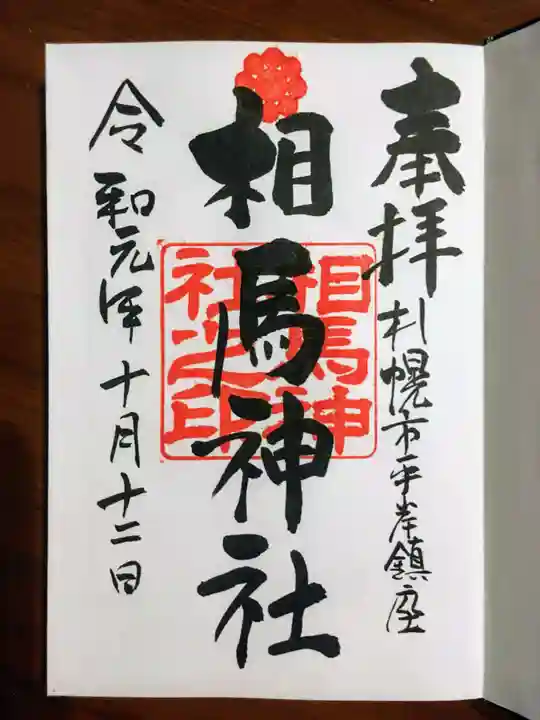 奉拝
札幌市平岸鎮座
相馬神社
相馬神
社之印
令和元年十月十二日